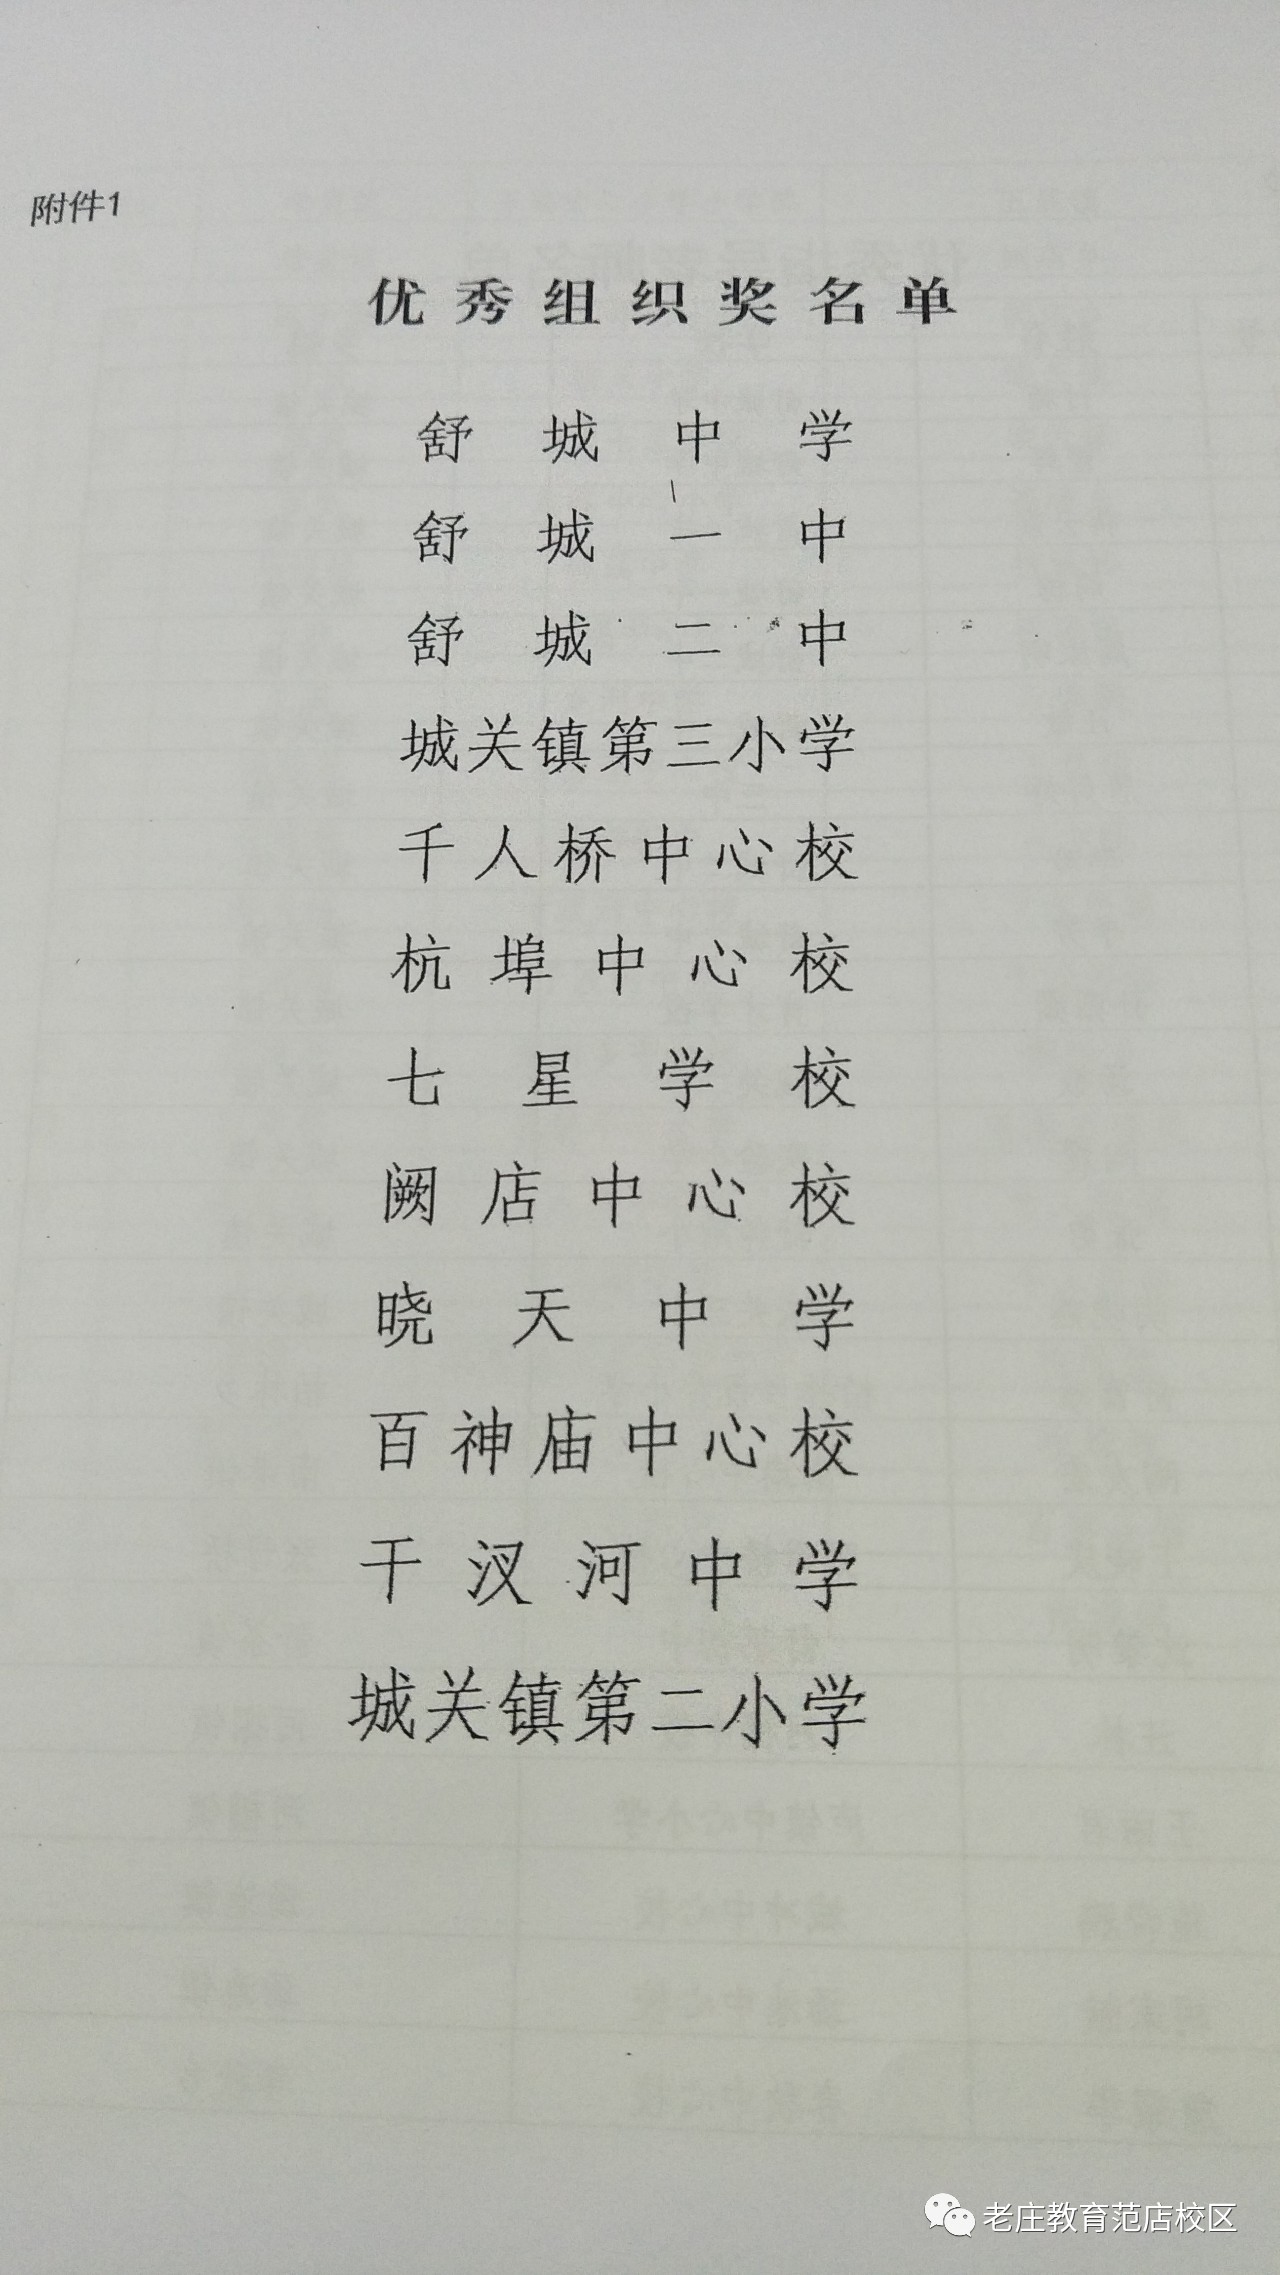 附件1
优秀组织奖名单
舒城中学
舒城一中
舒城二中
城关镇第三小学
千人桥中心校
杭埠中心校
七星学校
阙店中心校
晓天中学
百神庙中心校
干汊河中学
城关镇第二小学
老庄教育范店校区